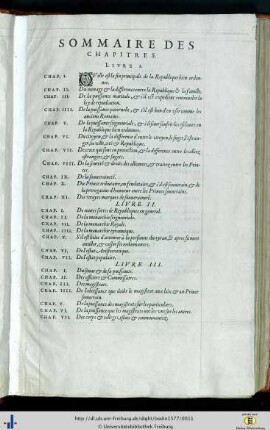 SOMMAIRE DES
CHAPITRES.
LIVRE I.
CHAP. I. Quelle est la fin principale de la Republique bien ordonnee.
CHAP. II. Du mesnage & la difference entre la Republique & la famille.
CHAP. III. De la puissance maritale, & s'il est expedient renouveller la
loy de repudiation.
CHAP. IIII. De la puissance paternelle, & s'il est bon d'en user comme les
anciens Romains.
CHAP. V. De la puissance seigneuriale, & s'il faut souffrir les esclaves en
la Republique bien ordonnee.
CHAP. VI. Du citoyen, & la difference d'entre le citoyen, le suget, l'estranger,
la ville, cité, & Republique.
CHAP. VII. De ceux qui sont en protection, & la difference entre les alliez,
estrangers, & sugets.
CHAP. VIII. De la seureté & droits des alliances, & traittez entre les Princes.
CHAP. IX. De la souveraineté.
CHAP. X. Du Prince tributaire, ou feudataire, & s'il est souverain, & de
la prerogative d'honneur entre les Princes souverains.
CHAP. XI. Des vrayes marques de souveraineté.
LIVRE II.
CHAP. I. De toutes sortes de Republiques en general.
CHAP. II. De la monarchie seigneuriale.
CHAP. III. De la monarchie Royale.
CHAP. IIII. De la monarchie tyrannique.
CHAP. V. S'il est licite d'attenter à la personne du tyran, & apres sa mort
annuller, & casser ses ordonnances.
CHAP. VI. De l'estat Aristocratique.
CHAP. VII. De l'estat populaire.
LIVRE III.
CHAP. I. Du senat & de sa puissance.
CHAP. II. Des officiers & Commissaires.
CHAP. III. Des magistrats.
CHAP. IIII. De l'obeissance que doibt le magistrat aux loix & au Prince
souverain.
CHAP. V. De la puissance des magistrats sur les particuliers.
CHAP. VI. De la puissance que les magistrats ont les uns sur les autres.
CHAP. VII. Des corps & colleges, estats & communautez.
http://dl.ub.uni-freiburg.de/diglit/bodin1577/0011
© Universitätsbibliothek Freiburg